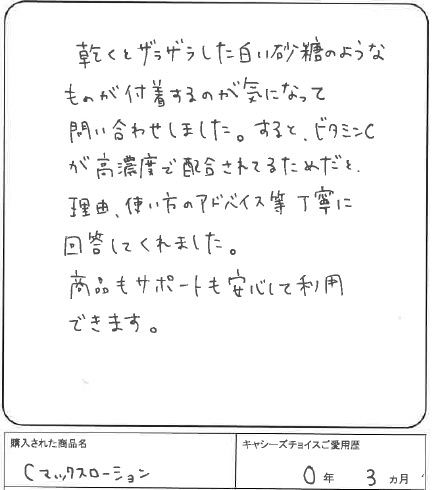 乾くとザラザラした白い砂糖のような
ものが付着するのが気になって
問い合わせしました。すると、ビタミンC
が高濃度で配合されてるためだと、
理由、使い方のアドバイス等丁寧に
回答してくれました。
商品もサポートも安心して利用
できます。
購入された商品名
Cマックスローション
キャシーズチョイスご愛用歴
0年 3ヵ月